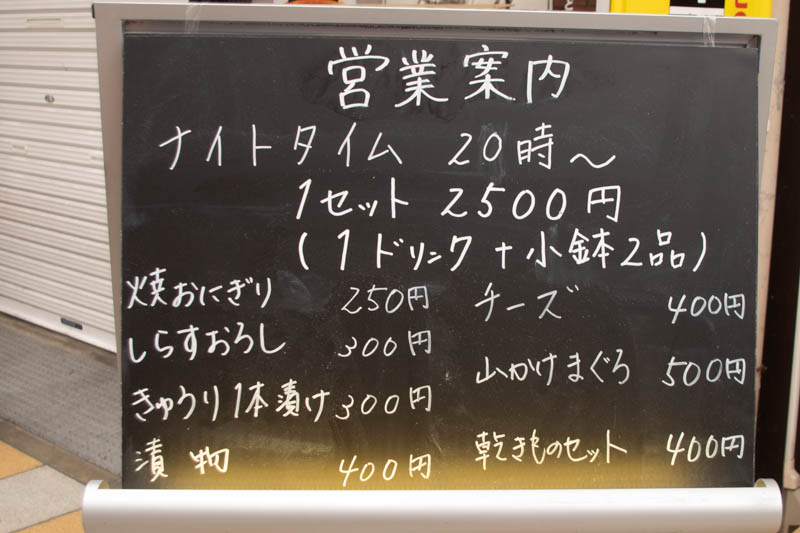 営業案内
ナイトタイム 20時〜
1セット 2500円
(1ドリンク+小鉢2品)
焼おにぎり 250円
しらすおろし 300円
きゅうり1本漬け 300円
漬物 400円
チーズ 400円
山かけまぐろ 500円
乾きものセット 400円